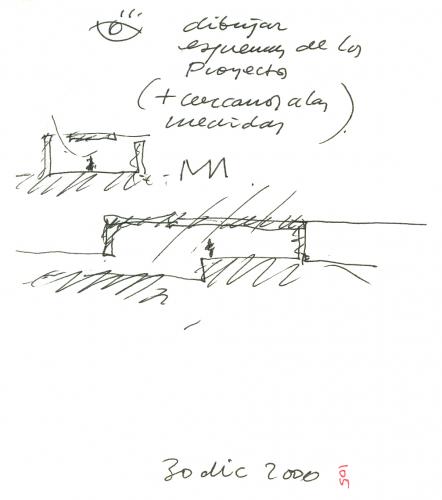 dibujar
esquemas de los
Proyecto
(+ cercanos a las
medidas)
30 dic 2000
501